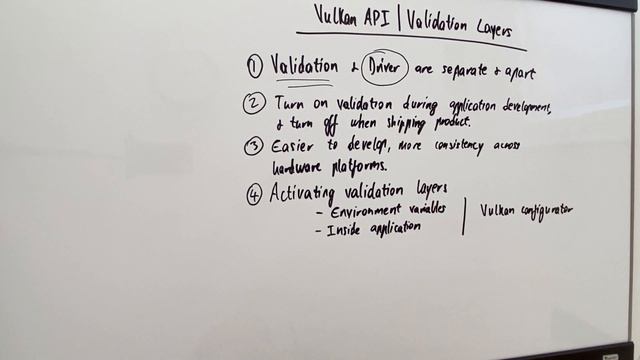 Vulkan API | Validation Layers
① Validation & Driver are separate & apart
② Turn on validation during application development,
& turn off when shipping product.
③ Easier to develop, more consistency across
hardware platforms.
④ Activating validation layers
- Environment variables | Vulkan configurator
- Inside application